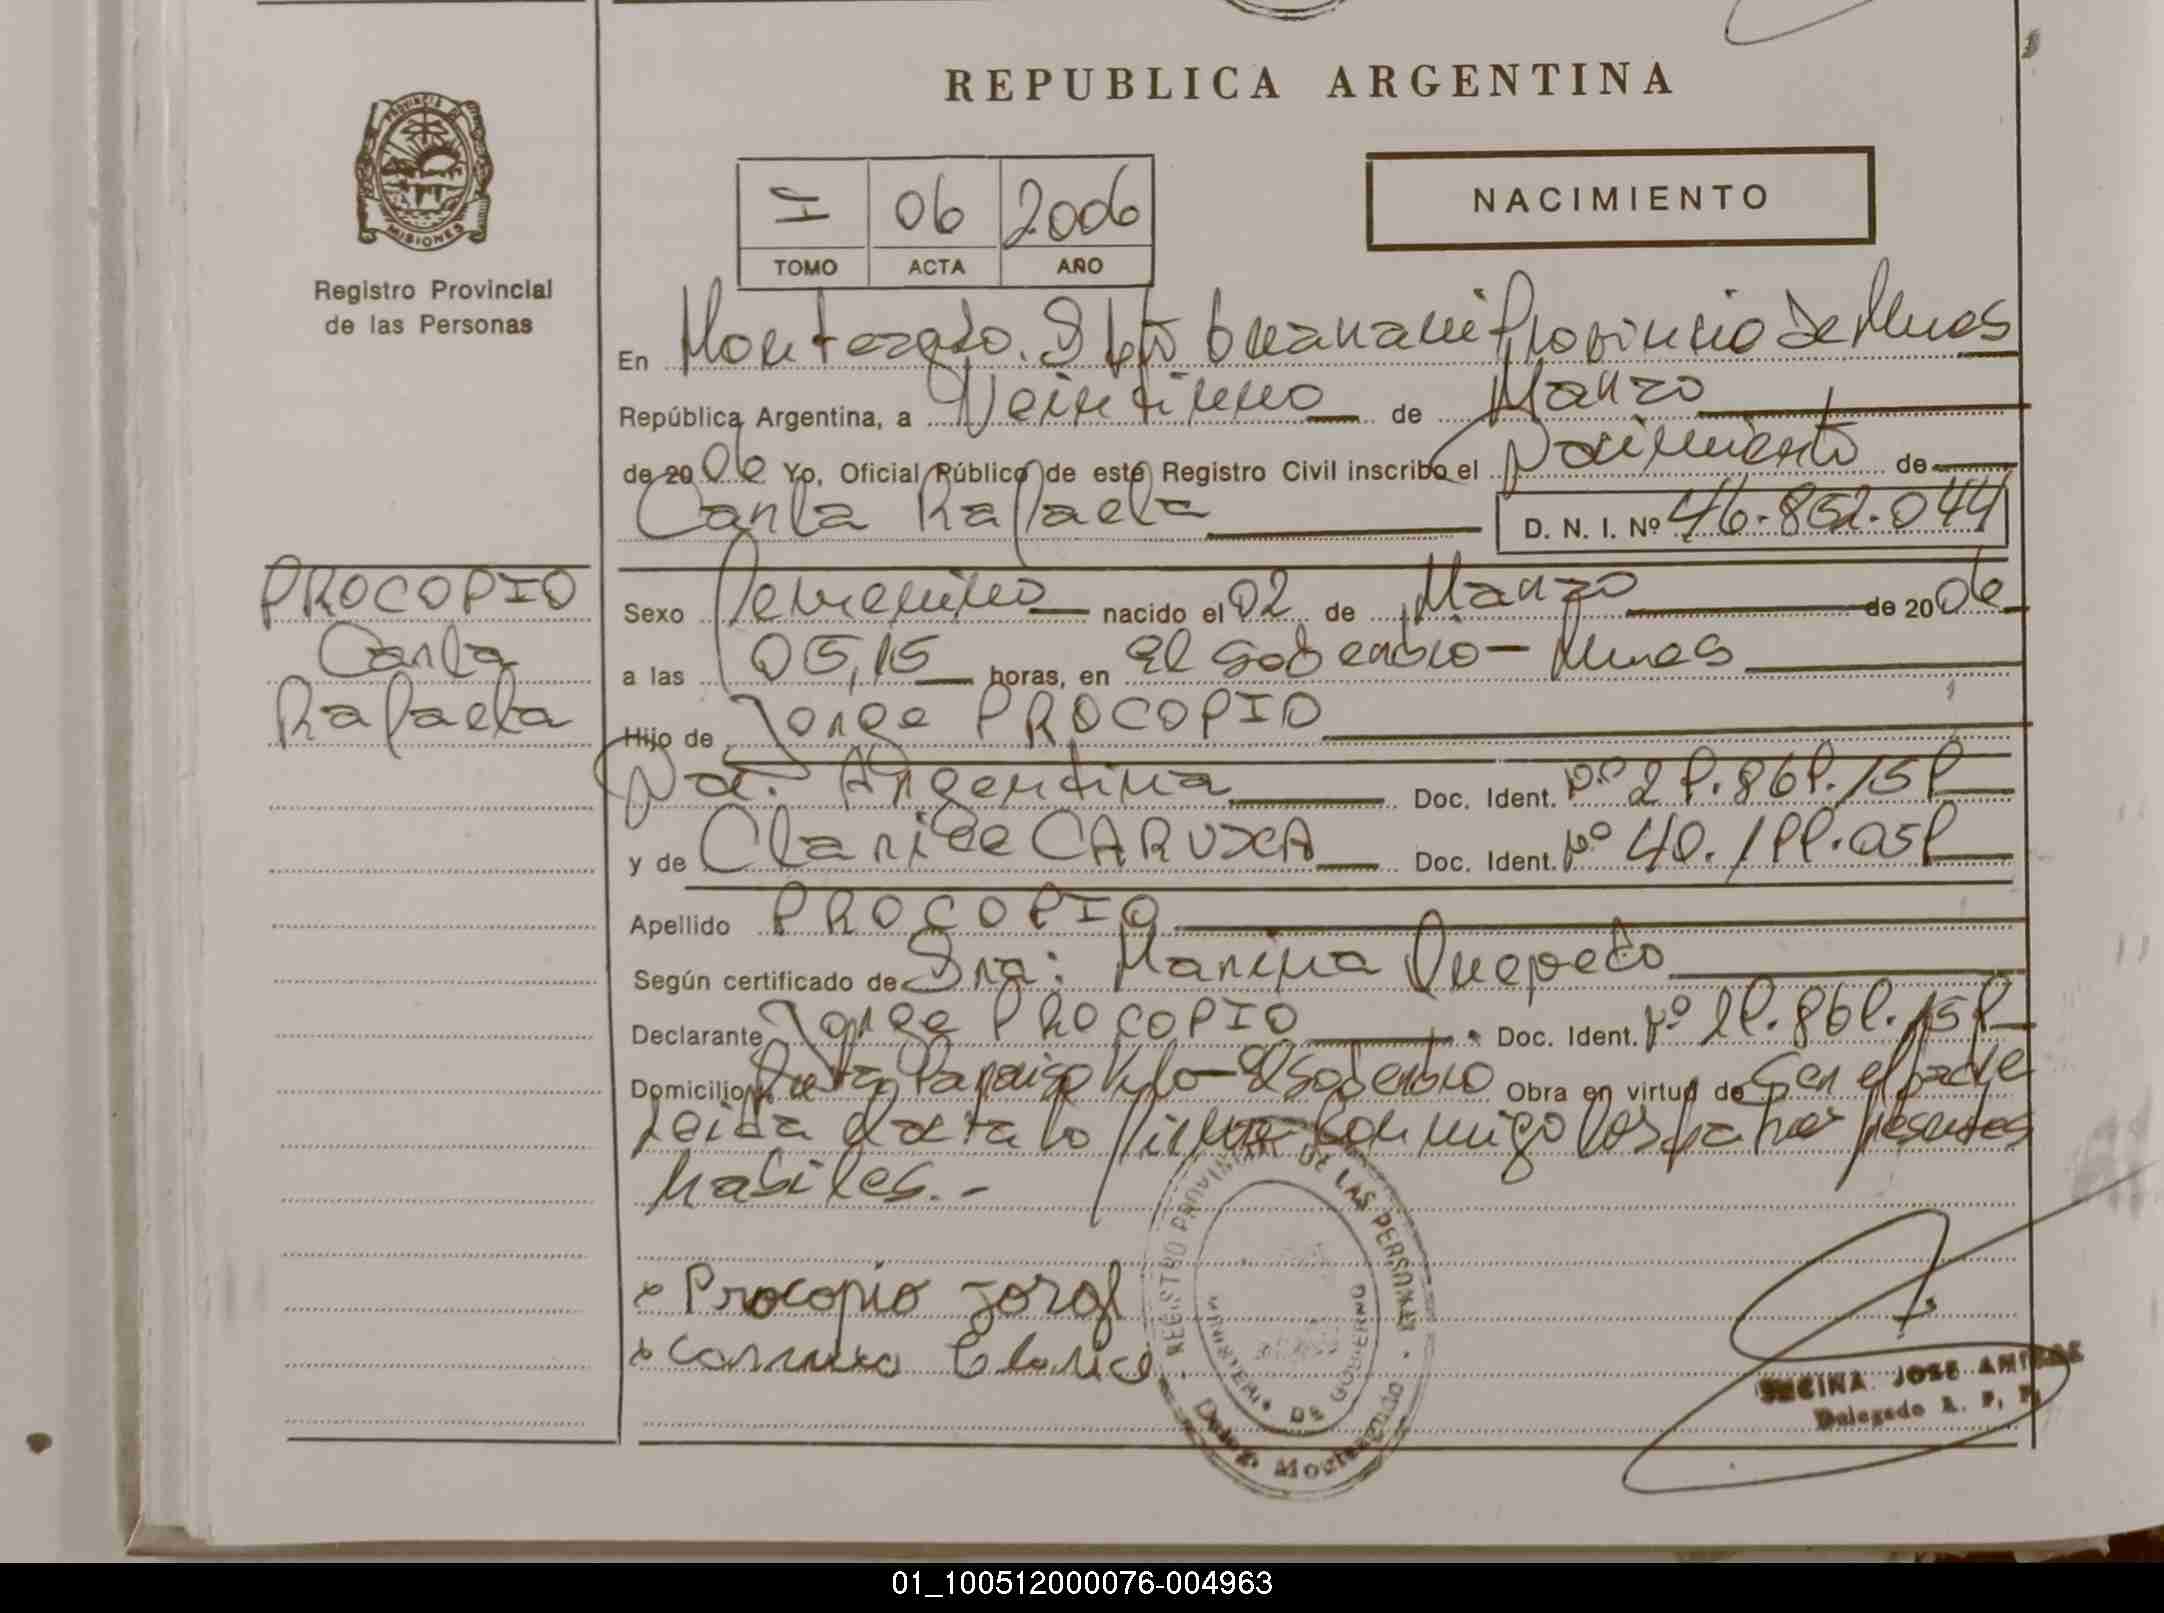 REPUBLICA ARGENTINA
NACIMIENTO
PROVINCIA
MISIONES
Registro Provincial
de las Personas
I 06 2006
TOMO ACTA AÑO
En Monteagudo. Dpto Guaraní Provincia de Mnes
República Argentina, a Veintiuno de Marzo
de 2006 Yo, Oficial Público de este Registro Civil inscribo el Nacimiento de
Carla Rafaela D. N. I. Nº 46.852.044
PROCOPIO
Carla
Rafaela
Sexo Femenino nacido el 02 de Marzo de 2006
a las 05,15 horas, en El Soberbio - Mnes
Hijo de Jorge PROCOPIO
Na. Argentina Doc. Ident. Nº
y de Clarice Doc. Ident. Nº
Apellido PROCOPIO
Según certificado de Dra: Marina
Declarante Jorge PROCOPIO Doc. Ident. Nº
Domicilio Ruta Paraiso - El Soberbio Obra en virtud de Ser el padre
Leida el acta la firma conmigo los padres presentes
habiles.-
x Procopio Jorge
x
REGISTRO PROVINCIAL DE LAS PERSONAS
MINISTERIO DE GOBIERNO
Deleg. Monteagudo
JOSE
Delegado R. P. P.
01_100512000076-004963